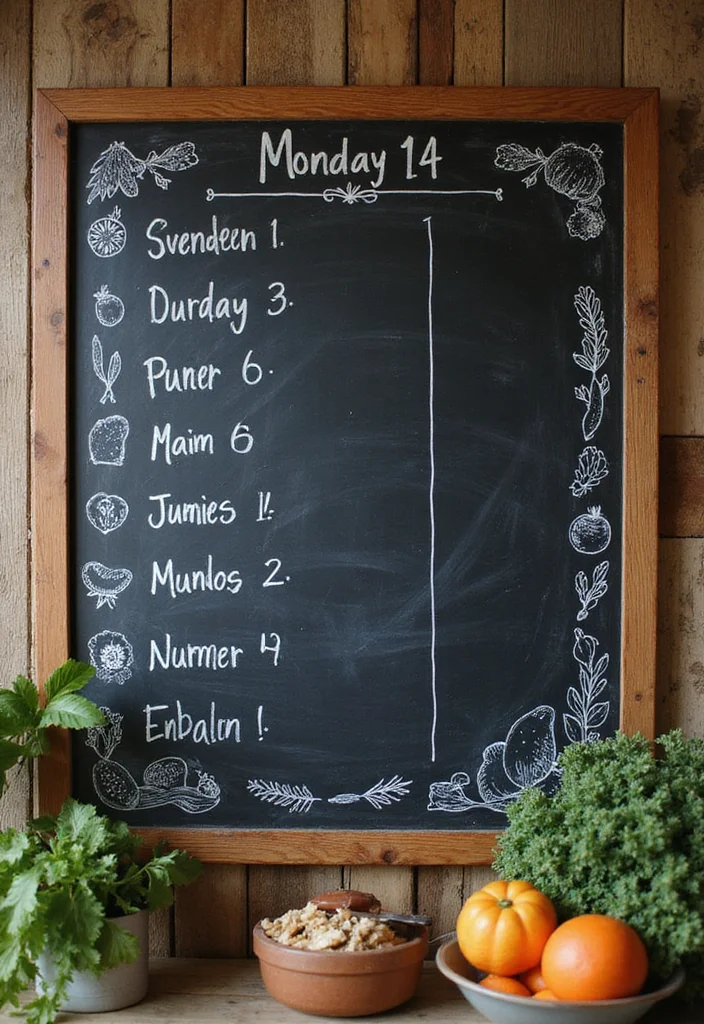 Monday 14
Svendeen 1.
Durday 3.
Puner 6.
Maim 6
Jumies
Munlos 2.
Nurmer 4
Enbalcn !.